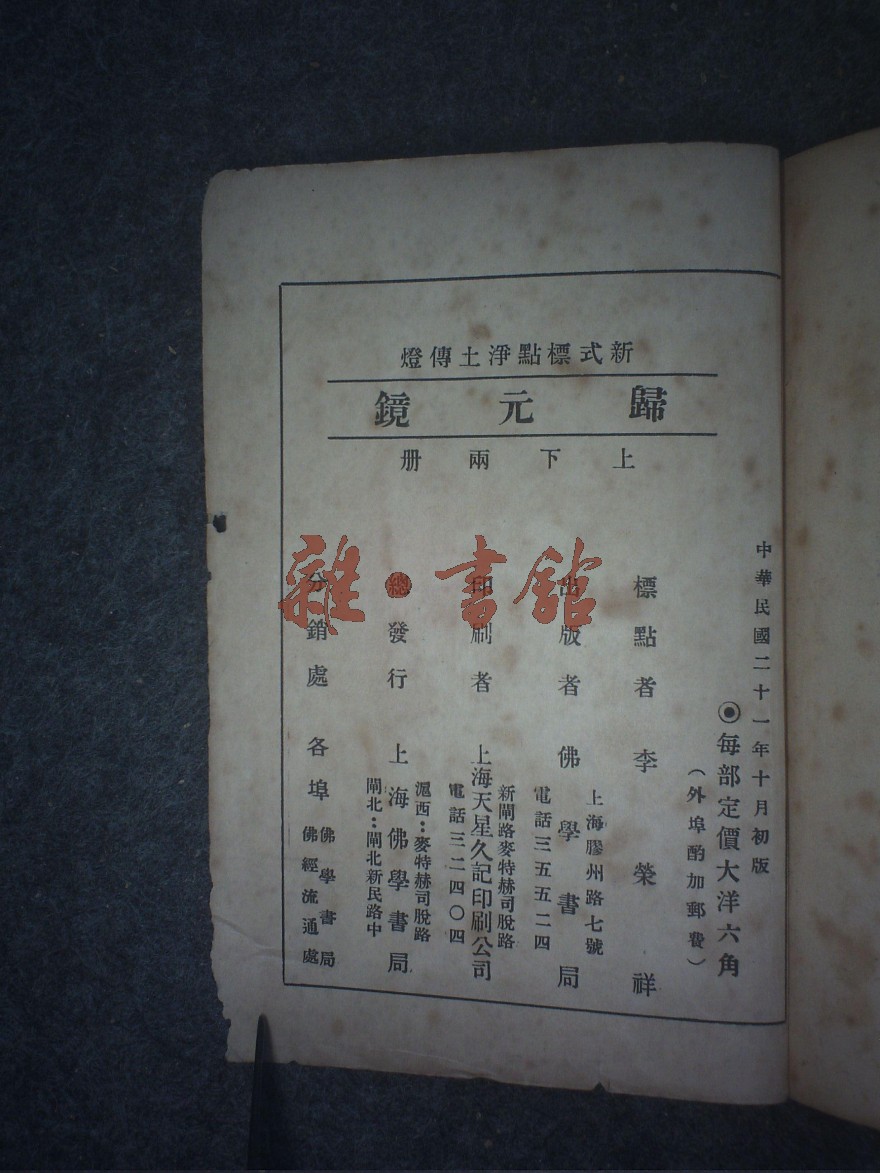 新式標點淨土傳燈
歸元鏡
上下兩册
中華民國二十一年十月初版
◉每部定價大洋六角
（外埠酌加郵費）
標點者 李榮祥
上海膠州路七號
出版者 佛學書局
電話三五五二四
新閘路麥特赫司脫路
印刷者 上海天星久記印刷公司
電話三二四〇四
滬西：麥特赫司脫路
總發行 上海佛學書局
閘北：閘北新民路中
分銷處 各埠
佛學書局
佛經流通處
雜·書館